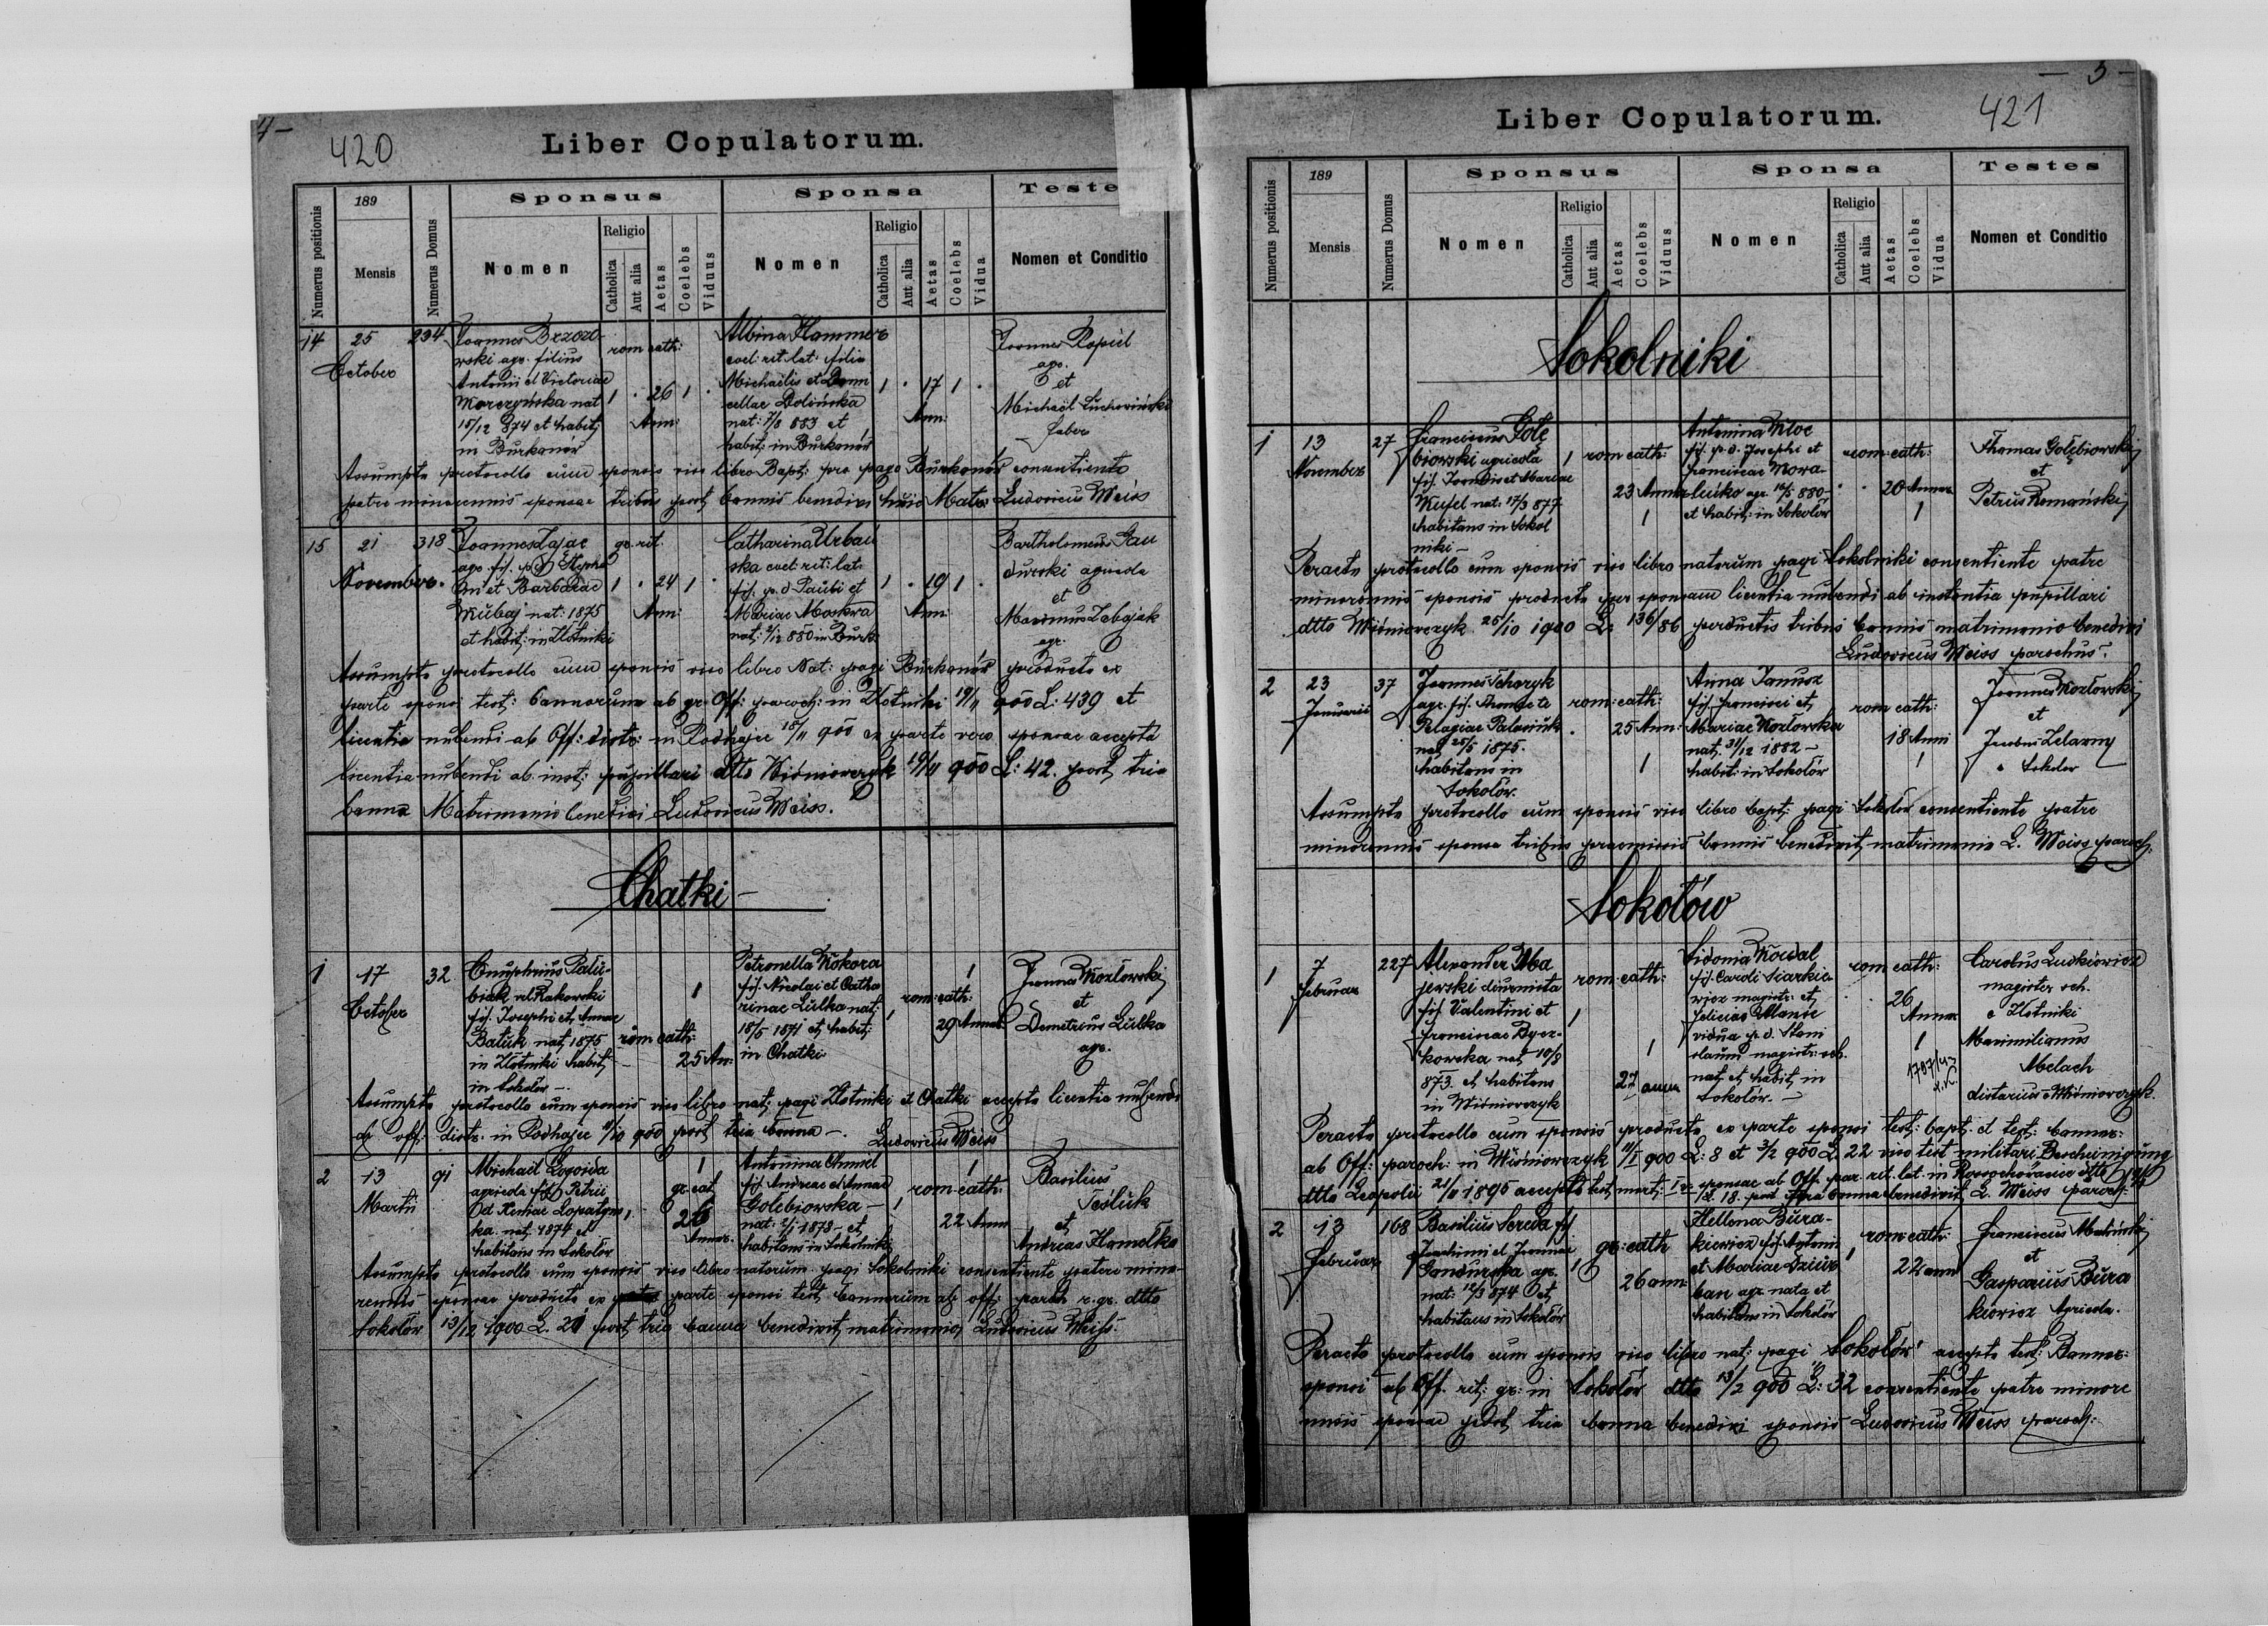 4-
420
Liber Copulatorum.
Numerus positionis
189
Mensis
Numerus Domus
Sponsus
Nomen
Religio
Catholica
Aut alia
Aetas
Coelebs
Viduus
Sponsa
Nomen
Religio
Catholica
Aut alia
Aetas
Coelebs
Vidua
Teste
Nomen et Conditio
14
25
October
234
Joannes Brzozo-
wski agr. filius
Antonii et Victoriae
nat
15/12 874 et habit:
in Burkanów
rom cath:
1 . 26 1 .
Ann:
Albina Hammer
coel: rit: lat: filia
Michaelis et Domi
cellae Dolińska
nat: 7/8 883 et
habit: in Burkanów
1 . 17 1 .
Ann:
Joannes Kopiel
agr.
et
Michael
faber
Assumpto protocollo cum sponsis viso libro Bapt: pro pago Burkanów consentiente
patre minorennis sponsae tribus post bannis benedixi huic Matr: Ludovicus Weiss
15
21
November.
318
Joannes Zając
agr. fil. p. d. Stepha
ni et Barbarae
Kubaj nat: 1875
et habit: in Złotniki
gr. rit.
1 . 24 1 .
Ann:
Catharina Urbań
ska coel: rit: lat:
fil. p. d Pauli et
Mariae Moskwa
nat: 3/12 880 in Burk.
1 . 19 1 .
Ann:
Bartholomeus Gau
durski agricola
et
Maximus
agr.
Assumpto protocollo cum sponsis viso libro Nat: pagi Burkanów producto ex
parte sponsi test: bannorum ab gr. Off: paroch: in Złotniki 19/11 900 L: 439 et
licentia nubendi ab Off: distr: in Podhajce 15/11 900 ex parte vero sponsae accepta
licentia nubendi ab inst: pupillari dtto Wiśniowczyk 19/11 900 L: 42. post tria
banna Matrimonio benedixi Ludovicus Weiss.
Chatki -
1
17
October
32
Onuphrius Palu-
biak vel Rakowski
fil. Josephi et Annae
Batuk nat 1875
in Złotniki habit
in Sokołów -.
rom cath:
1
25 An.
Petronella Kokora
fil. Nicolai et Catha
rinae Lulka nat:
18/5 1871 et habit:
in Chatki
1
rom: cath:
1
29 Annor
Joannes Kozłowski
et
Demetrius Lulka
agr.
Assumpto protocollo cum sponsis viso libro nat. pagi Złotniki et Chatki accepta licentia nubendi
ab off: distr. in Podhajce 11/10 900 post tria banna -. Ludovicus Weiss
2
13
Martii
91
Michael Łogoida
agricola fil. Petrii
et Xeniae Łopatyns
ka. nat. 1874 et
habitans in Sokołów
1
gr. cat
26
Annor.
Antonina Chmiel
fil. Andreae et Annae
Gołębiowska -
nat: 2/1 1878 - et
habitans in Sokolniki
1
rom-cath:
1
22 Ann
Basilius
Tesluk
et
Andreas Hamolka
Assumpto protocollo cum sponsis viso libro natorum pagi Sokolniki consentiente patre mino-
rennis sponsae producto ex parte sponsi test. bannorum ab off: paroch r. gr. dtto
Sokołów 13/12 1900 L. 21 post tria banna benedixit matrimonio Ludovicus Weiss.
- 5 -
421
Liber Copulatorum.
Numerus positionis
189
Mensis
Numerus Domus
Sponsus
Nomen
Religio
Catholica
Aut alia
Aetas
Coelebs
Viduus
Sponsa
Nomen
Religio
Catholica
Aut alia
Aetas
Coelebs
Vidua
Testes
Nomen et Conditio
Sokolniki
1
13
November
27
Franciscus Gołę
biowski agricola
fil. Joannis et Mariae
Kufel nat: 17/3 877
habitans in Sokol
niki -
1 rom cath:
23 Annor
1
Antonina Kloc
fil. p. d. Josephi et
Franciscae Nowa-
agr. 16/5 880
et habit: in Sokołów
rom: cath:
20 Annor
1
Thomas Gołębiowski
et
Petrus Romański
Peracto protocollo cum sponsis viso libro natorum pagi Sokolniki consentiente patre
minorennis sponsis producta per sponsam licentia nubendi ab instantia pupillari
dtto Wiśniowczyk 25/10 1900 L. 136/86 perductis tribus bannis matrimonio benedixi
Ludovicus Weiss parochus.
2
23
Januarii
37
Joannes
agr. fil. Thomae et
Pelagiae Palaniuk
nat 25/5 1875.
habitans in
Sokołów.
rom: cath:
25 Ann:
1
Anna Janusz
fil. Francisci et
Mariae Kozłowska
nat. 31/12 1882 -
habit: in Sokołów
rom cath:
18 Anni
1
Joannes Kozłowski
et
Jacobus Zelazny
e Sokołów
Assumpto protocollo cum sponsis viso libro bapt: pagi Sokołów consentiente patre
minorennis sponsa tribus praemissis bannis benedixit matrimonio L. Weiss paroch.
Sokołów
1
7
Februar
227
Alexander Ma
jewski diurnista
fil. Valentini et
Franciscae Dycz-
kowska nat 10/8
873. et habitans
in Wiśniowczyk
rom: cath:
1
1
27 annor
Sidonia Kowal
fil. Caroli Siarkie
wicz magistr. et
Feliciae Manie
vidua p. d. Stani
slaum magistr: sch.
nat et habit in
Sokołów. -
rom cath:
26
Annor
1
Carolus Ludkiewicz
magister sch.
e Złotniki
Maximilianus
Melach
dietarius e Wiśniowczyk.
Peracto protocollo cum sponsis producto ex parte sponsi test: bapt. et test: bannor:
ab Off: paroch: in Wiśniowczyk 11/I 900 L: 8 et 3/2 900 L: 22 viso test militari Bescheinigung
dtto Leopolii 21/II 1895 accepto test. mort: sponsae ab Off. par. rit. lat. in
L. 18. post tria banna benedixit L. Weiss paroch:
2
13
Februar
168
Basilius Sereda fil
Joachimi et Joannae
agr.
nat. 12/3 874 et
habitans in Sokołów
gr: cath
1
26 ann
Hellena Bura-
kiewicz fil. Antonii
et Mariae
ban agr. nata et
habitans in Sokołów
1 rom: cath:
22 ann
Franciscus
et
Gasparius Bura
kiewicz Agricola.
Peracto protocollo cum sponsis viso libro nat: pagi Sokołów accepto test: Bannor:
sponsi ab Off. rit: gr: in Sokołów dtto 13/2 900 L: 32 consentiente patre minore
nnis sponsae post tria banna benedixi sponsis Ludovicus Weiss paroch: